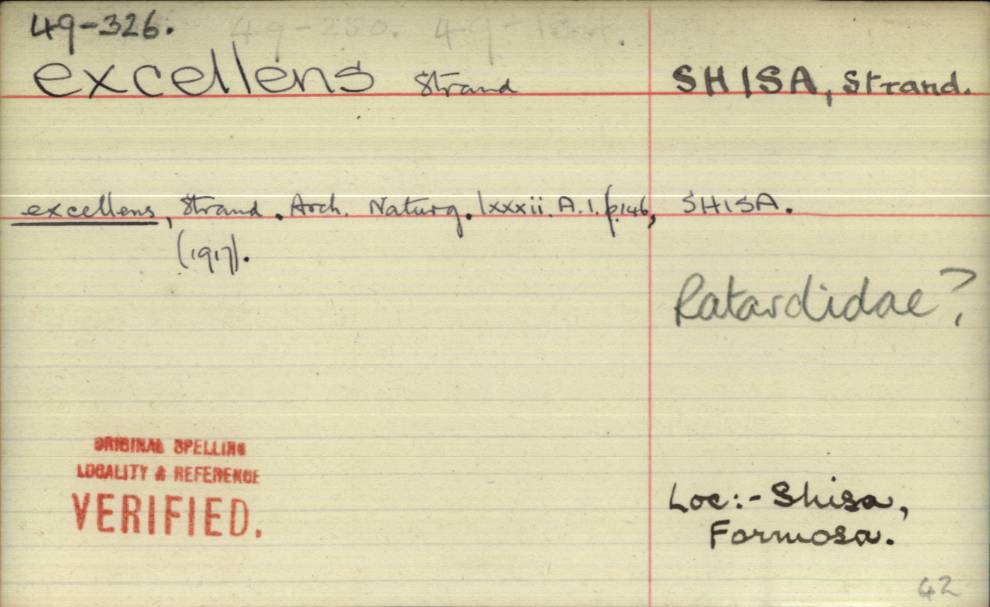 49-326. 49-250.
excellens Strand SHISA, Strand.
excellens, Strand. Arch. Naturg. lxxxii. A.1. p.146, SHISA.
(1917).
Ratardidae?
ORIGINAL SPELLING
LOCALITY & REFERENCE
VERIFIED.
Loc:- Shisa,
Formosa.
42